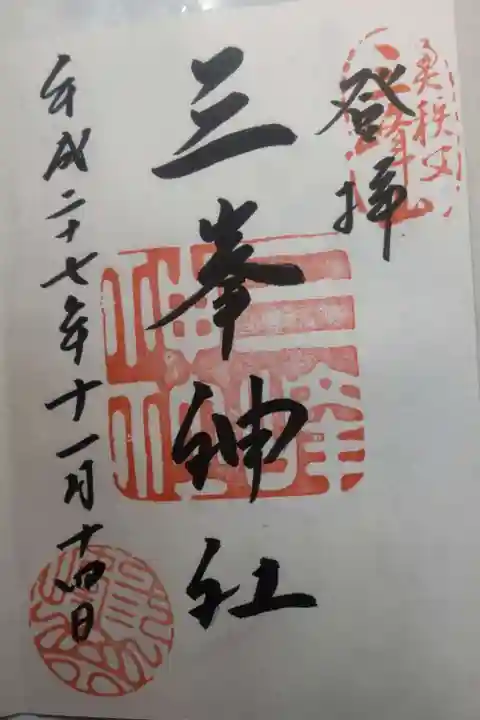 奥秩父
三峰山
登拝
三峯神社
平成二十七年十一月十四日